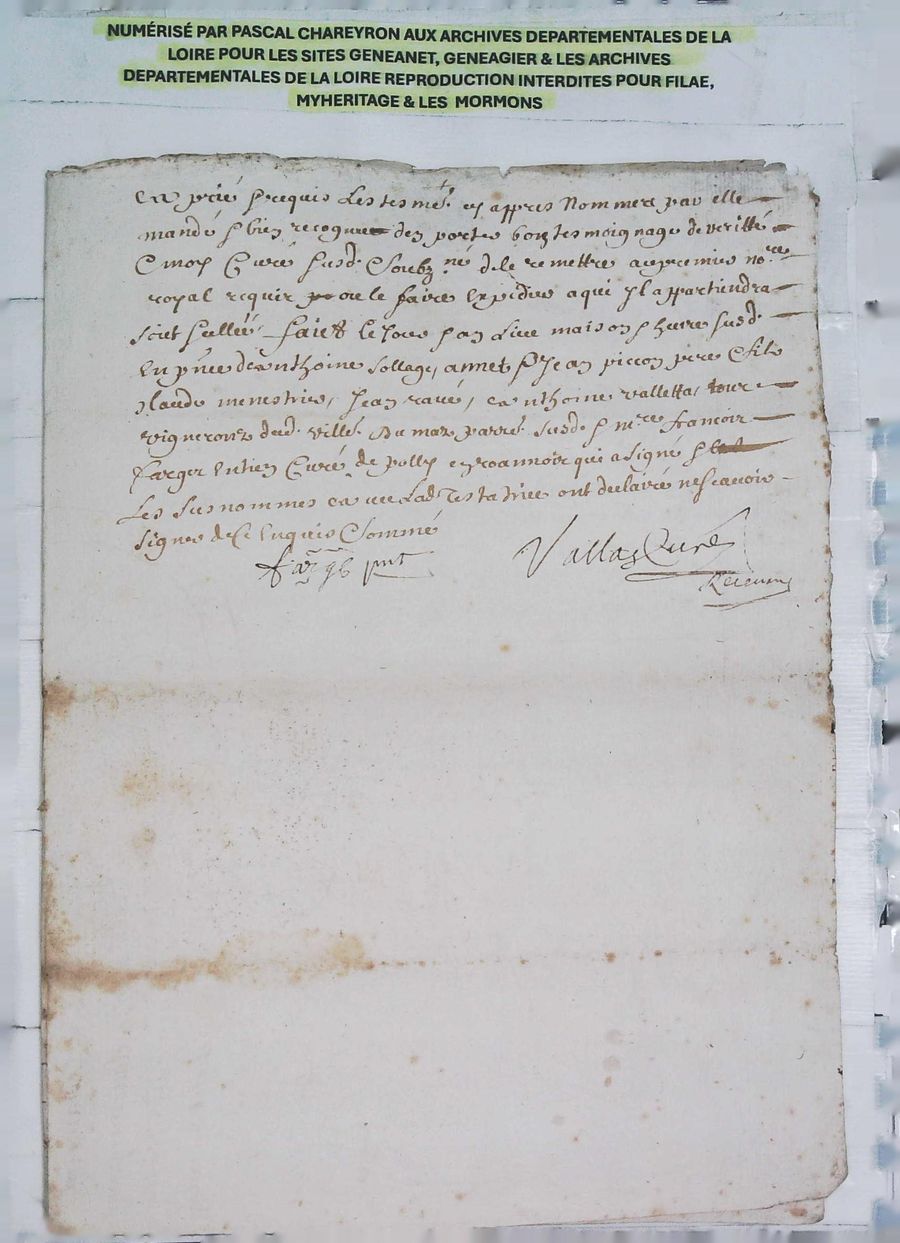 NUMÉRISÉ PAR PASCAL CHAREYRON AUX ARCHIVES DEPARTEMENTALES DE LA
LOIRE POUR LES SITES GENEANET, GENEAGIER & LES ARCHIVES
DEPARTEMENTALES DE LA LOIRE REPRODUCTION INTERDITES POUR FILAE,
MYHERITAGE & LES MORMONS
prié & requis les tesme. cy appres nommes par elle
mandé & bien recogneu den porter bon tesmoignage de veritté
& moy Curé susd. Soubzné de le remettre au premier nore
royal requir pour le faire expedier a qui il appartiendra
soit sellée, faict le jour & an lieu maison & heure susd.
en pnce de anthoine sollage, annet & Jean piccon pere & filz
claude menestrier, Jean ravé, anthoine valletta, tour
vignerons dud. villé. du mas parré susd. & mre francoir
farger entien Curé de pollÿ en roannoir qui a signé &
les susnommes la Testatrice ont declairé ne scavoir
signer de ce enquis & sommé
pnt Curé